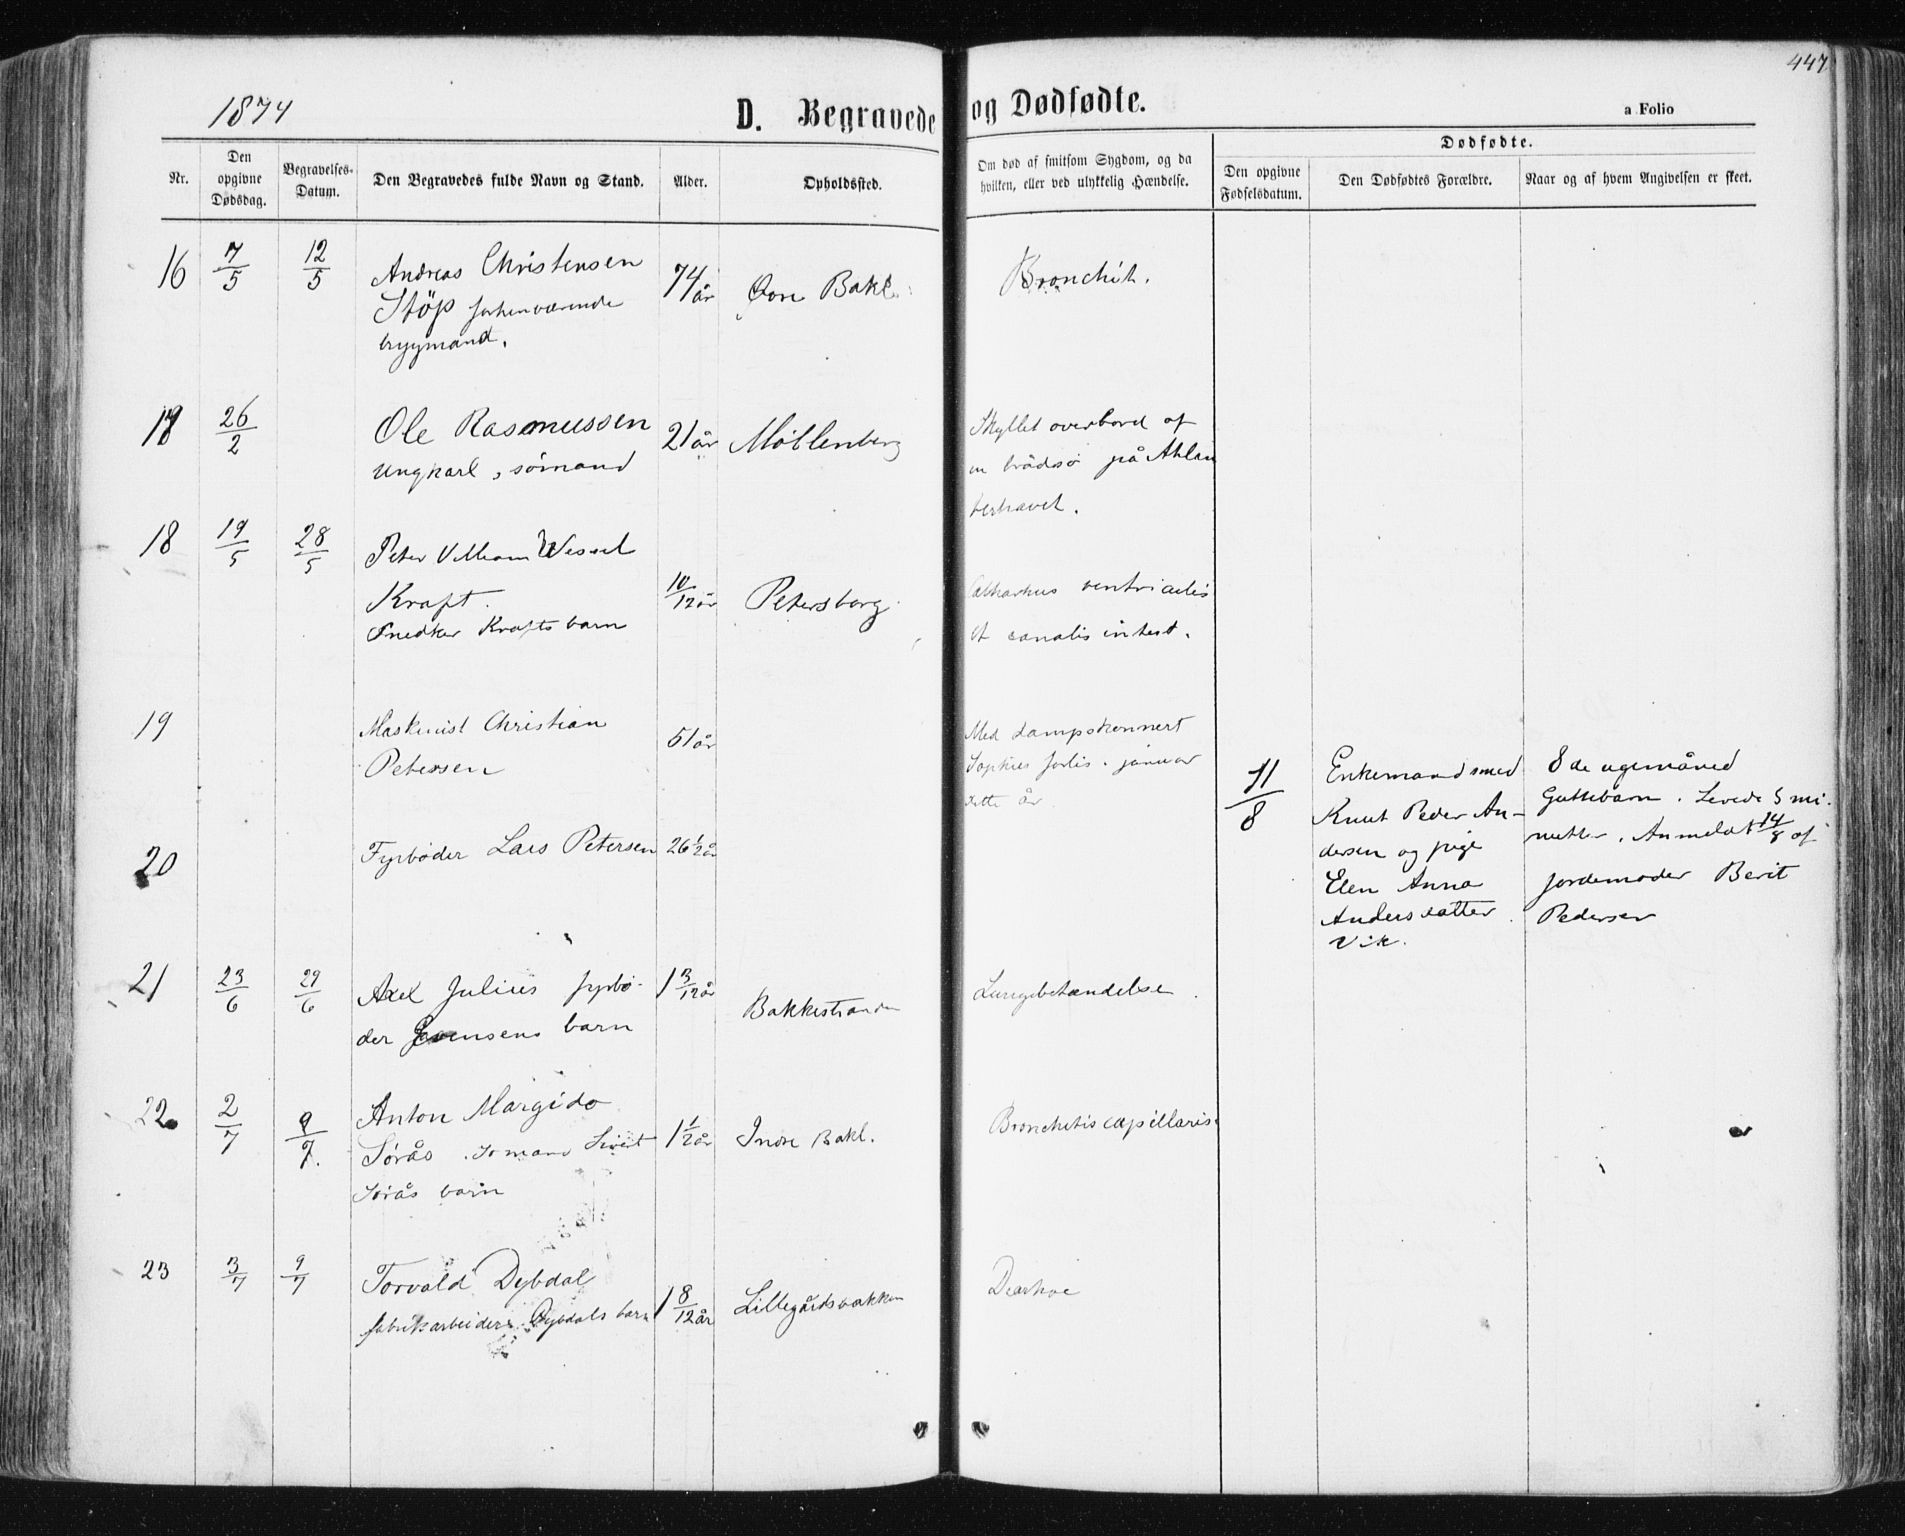 447
1874
D. Begravede og Dødfødte.
a Folio
Nr.
Den opgivne Dødsdag.
Begravelses-Datum.
Den Begravedes fulde Navn og Stand.
Alder.
Opholdssted.
Om død af smitsom Sygdom, og da hvilken, eller ved ulykkelig Hændelse.
Dødfødte.
Den opgivne Fødselsdatum.
Den Dødfødtes Forældre.
Naar og af hvem Angivelsen er skeet.
16 7/5 12/5 Andreas Christensen
Støp forhenværende
brygmand.
74 år Øvre Bakl. Bronchit.
17 26/2 Ole Rasmussen
Ungkarl, sømand
21 år Møllenberg
Skyllet overbord af
en brådsø på Atlan
terhavet.
18 19/5 28/5 Peter Villiam Wessel
Kraft.
Snedker Krafts barn
10/12 år Petersborg.
Catharhus ventriculis
et canalis intest.
19 Maskinist Christian
Petersen
51 år
Med dampskonnert
Sophies forlis. januar
dette år
20 Fyrbøder Lars Petersen 26 1/2 år
11/8
Enkemand smed
Knut Peder An-
dersen og pige
Elen Anna
Andersdatter
Vik.
8de ugemåned
Guttebarn. Levede 5 mi-
nutter. Anmeldt 14/8 af
jordemoder Berit
Pedersen
21 23/6 29/6 Axel Julius fyrbø-
der Jensens barn
1 3/12 år Bakkestranden Lungebetændelse
22 2/7 9/7. Anton Margido
Sørås. Sømand Sivert
Sørås barn
1 1/2 år Indre Bakl. Bronchitis capillaris.
23 3/7 9/7 Torvald Dybdal
fabrikarbeider Dybdals barn
1 8/12 år Lillegårdsbakken Diarhoe